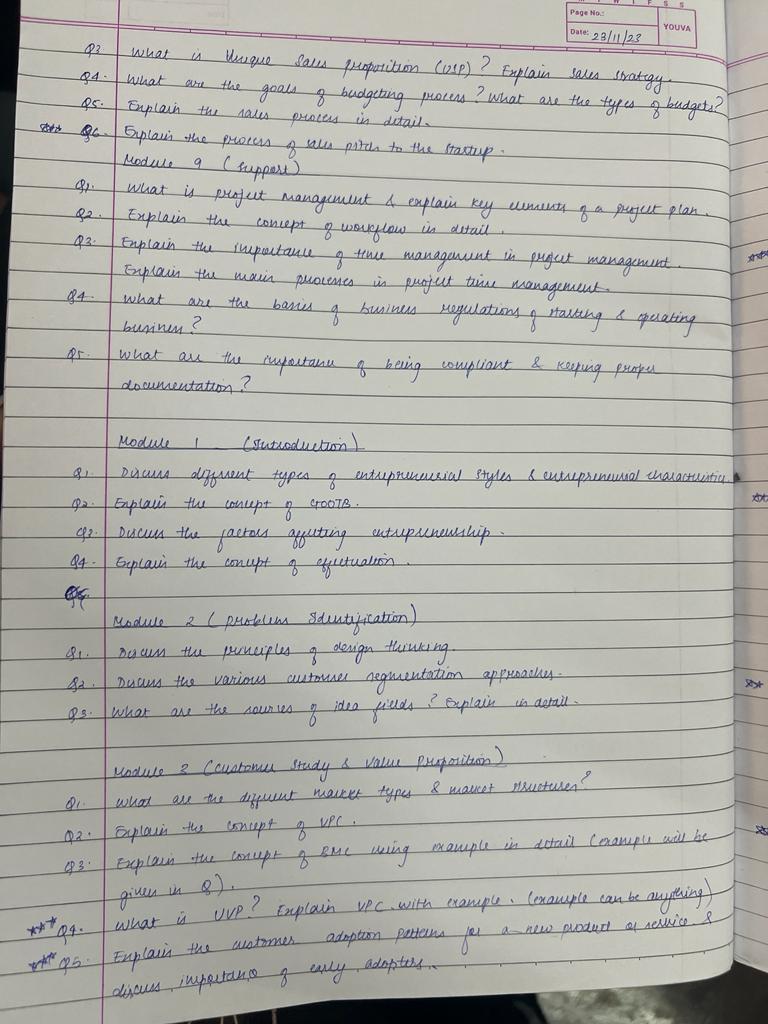 Page No.:
Date: 23/11/23
YOUVA
Q3 What is Unique Sales proposition (USP)? Explain sales strategy.
Q4. What are the goals of budgeting process? What are the types of budgets?
Q5. Explain the sales process in detail.
*** Q6. Explain the process of sales pitch to the startup.
Module 9 (Support)
Q1. What is project management & explain key elements of a project plan.
Q2. Explain the concept of workflow in detail.
Q3. Explain the importance of time management in project management.
Explain the main processes in project time management.
Q4. What are the basics of business regulations of starting & operating
business?
Q5. What are the importance of being compliant & keeping proper
documentation?
Module 1 (Introduction)
Q1. Discuss different types of entrepreneurial styles & entrepreneurial characteristics.
Q2. Explain the concept of GOOTB.
Q3. Discuss the factors affecting entrepreneurship.
Q4. Explain the concept of effectuation.
Module 2 (Problem Identification)
Q1. Discuss the principles of design thinking.
Q2. Discuss the various customer segmentation approaches.
Q3. What are the sources of idea fields? Explain in detail.
Module 3 (Customer Study & Value Proposition)
Q1. What are the different market types & market structures?
Q2. Explain the concept of VPC.
Q3. Explain the concept of BMC using example in detail (example will be
given in Q).
*** Q4. What is UVP? Explain VPC with example. (example can be anything)
*** Q5. Explain the customer adoption patterns for a new product or service &
discuss importance of early adopters.